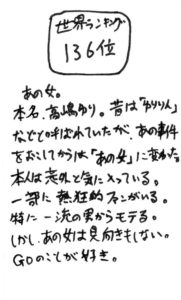 世界ランキング
136位
あの女。
本名、高嶋ゆり。昔は「ゆりりん」
などと呼ばれていたが、あの事件
をおこしてからは、「あの女」に変わった。
本人は意外と気に入っている。
一部に熱狂的ファンがいる。
特に一流の男からモテる。
しかし、あの女は見向きもしない。
GOのことが好き。